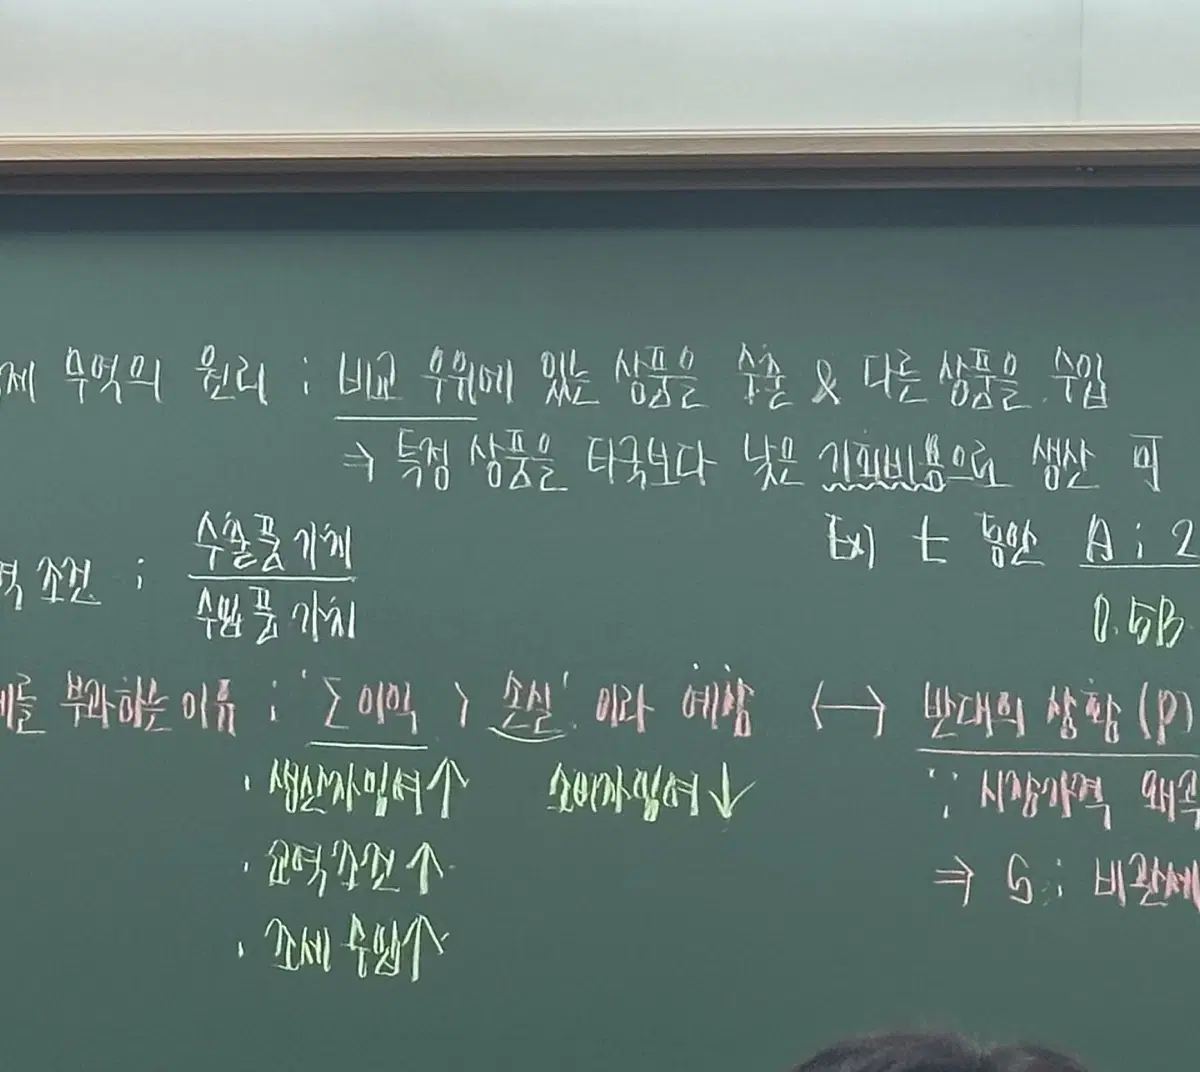 제 무역의 원리 : 비교 우위에 있는 상품을 수출 & 다른 상품을 수입
⇒ 특정 상품을 타국보다 낮은 기회비용으로 생산 可
역 조건 : 수출품 가치
수입품 가치
t 동안 A : 2
0.5B
세를 부과하는 이유 : '∑이익 > 손실' 이라 예상 ↔ 반대의 상황 (P)
· 생산자잉여↑ 소비자잉여↓ ∵ 시장가격 왜곡
· 교역조건↑ ⇒ G : 비관세
· 조세 수입↑